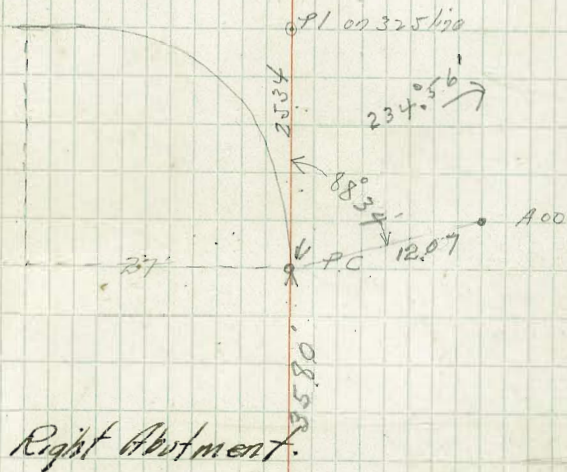 P1 on 325 line
2534
234° 56'
88° 34'
A00
12.07
P.C
27'
3580'
Right Abutment.